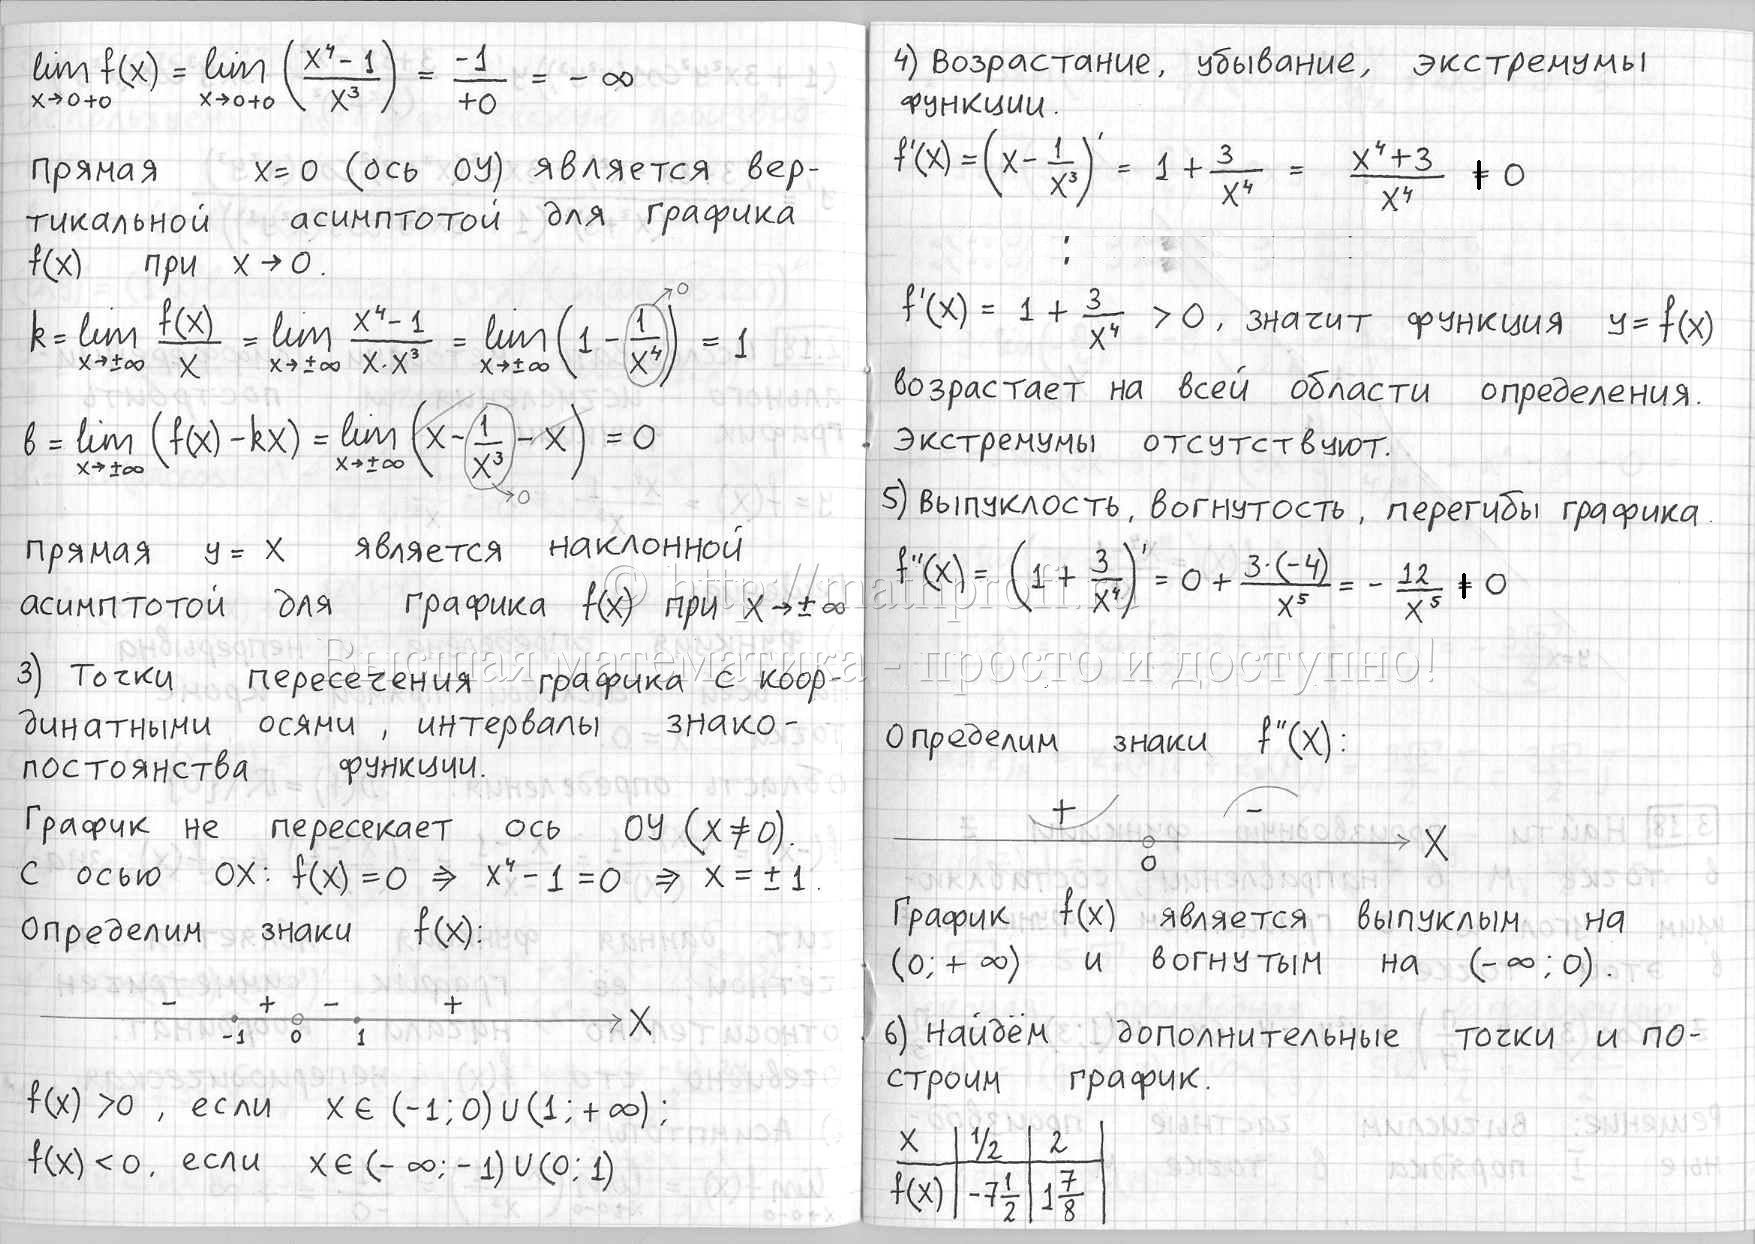 lim f(x) = lim ((x⁴ - 1)/x³) = -1/+0 = - ∞
x→0+0 x→0+0
прямая x=0 (ось ОУ) является вер-
тикальной асимптотой для графика
f(x) при x→0.
k = lim f(x)/x = lim (x⁴-1)/(x·x³) = lim (1 - 1/x⁴) = 1
x→±∞ x→±∞ x→±∞ →0
b = lim (f(x) - kx) = lim (x - 1/x³ - x) = 0
x→±∞ x→±∞ →0
прямая y = x является наклонной
асимптотой для графика f(x) при x→±∞
3) Точки пересечения графика с коор-
динатными осями, интервалы знако-
постоянства функции.
График не пересекает ось ОУ (x≠0).
С осью ОХ: f(x)=0 ⇒ x⁴-1=0 ⇒ x=±1.
Определим знаки f(x):
- + - +
-1 0 1 X
f(x) >0, если x∈(-1;0)∪(1;+∞);
f(x) <0, если x∈(-∞;-1)∪(0;1)
4) Возрастание, убывание, экстремумы
функции.
f'(x) = (x - 1/x³)' = 1 + 3/x⁴ = (x⁴+3)/x⁴ ≠ 0
f'(x) = 1 + 3/x⁴ >0, значит функция y=f(x)
возрастает на всей области определения.
Экстремумы отсутствуют.
5) Выпуклость, вогнутость, перегибы графика.
f"(x) = (1 + 3/x⁴)' = 0 + 3·(-4)/x⁵ = - 12/x⁵ ≠ 0
© http://mathprofi.ru
Высшая математика - просто и доступно!
Определим знаки f"(x):
+ -
0 X
График f(x) является выпуклым на
(0;+∞) и вогнутым на (-∞;0).
6) Найдём дополнительные точки и по-
строим график.
x | 1/2 | 2 |
f(x) | -7 1/2 | 1 7/8 |